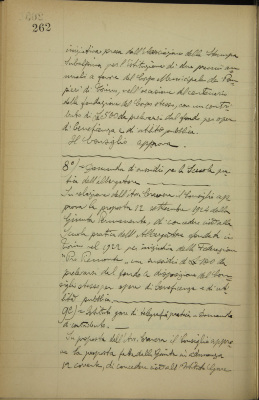 262
iniziativa presa dall'Associazione della Stampa
Subalpina per l'istituzione di due premi an
nuali a favore del Corpo Municipale dei Pom
pieri di Torino, nell'occasione del centenario
della fondazione del Corpo stesso, con un contri
buto di L. 500 da prelevarsi dal fondo per opere
di beneficenza e di utilità pubblica.
Il Consiglio approva.
8°) - Domanda di sussidio per la Scuola pra
tica dell'Albergatore.
Su relazione dell'On. Consiglio ap
prova la proposta 12 settembre 1924 della
Giunta Permanente, di concedere
Scuola pratica dell'Albergatore fondata in
Torino nel 1922 per iniziativa della Federazione
Pro Piemonte, un sussidio di L. da
prelevarsi dal fondo a disposizione del Con
siglio stesso per opere di beneficenza e di uti
lità pubblica.
9°) - Istituto per la - Domanda
di contributo. -
Su proposta dell'On. il Consiglio appro
va la proposta fatta dalla Giunta in adunanza
12 corrente, di concedere